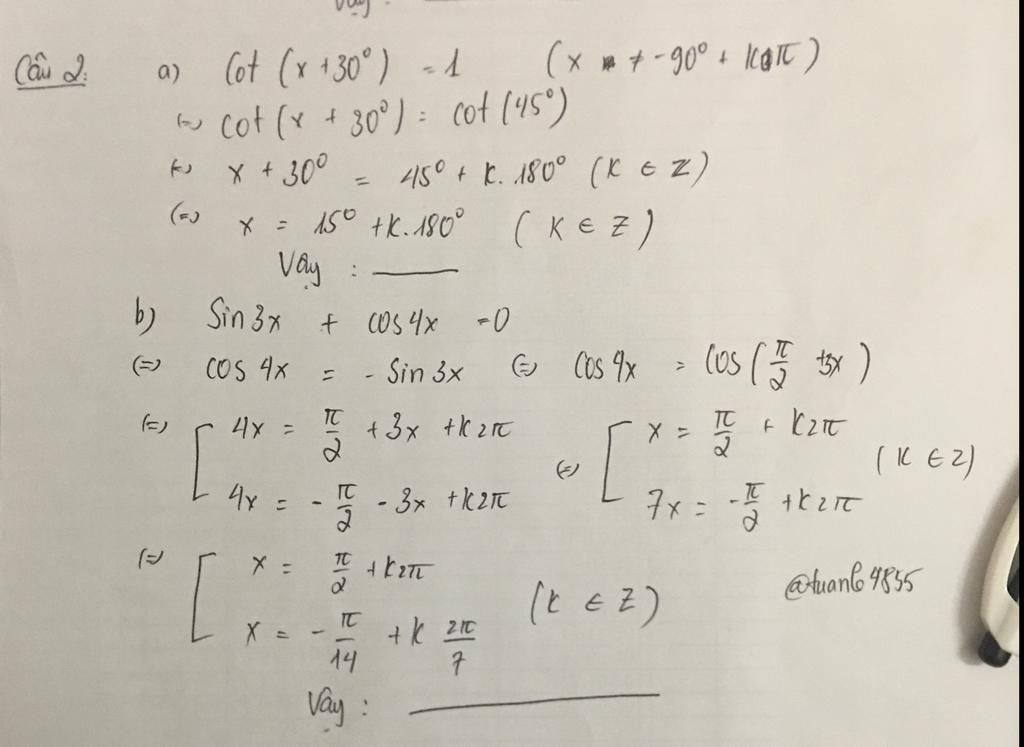 Vậy :
Câu 2: a) Cot (x + 30°) = 1 (x ≠ -90° + kπ)
(=) cot (x + 30°) = cot (45°)
(=) x + 30° = 45° + k. 180° (k ∈ Z)
(=) x = 15° + k. 180° (k ∈ Z)
Vậy :
b) Sin 3x + cos 4x = 0
(=) cos 4x = - Sin 3x (=) Cos 4x = Cos (π/2 + 3x)
(=) [ 4x = π/2 + 3x + k2π (=) [ x = π/2 + k2π (k ∈ Z)
4x = - π/2 - 3x + k2π 7x = - π/2 + k2π
(=) [ x = π/2 + k2π (k ∈ Z)
x = - π/14 + k 2π/7
@tuanl64855
Vậy :